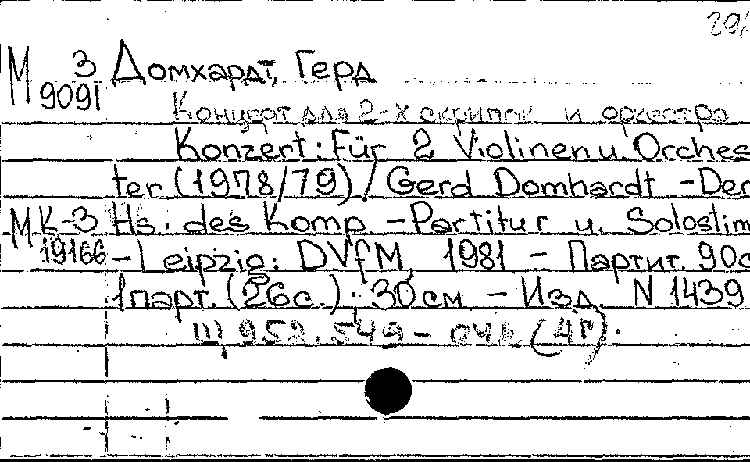 М 3 Домхардт, Герд
9091
Концерт для 2-х скрипок и оркестра
Konzert: Für 2 Violinen u. Orches
ter (1978/79) / Gerd Domhardt - Der
М К-3 Hs. des Komp. - Partitur u. Solostim
19166 - Leipzig: DVfM, 1981 - Партит. 90с
1парт. (26с.); 30см. - Изд. N 1439